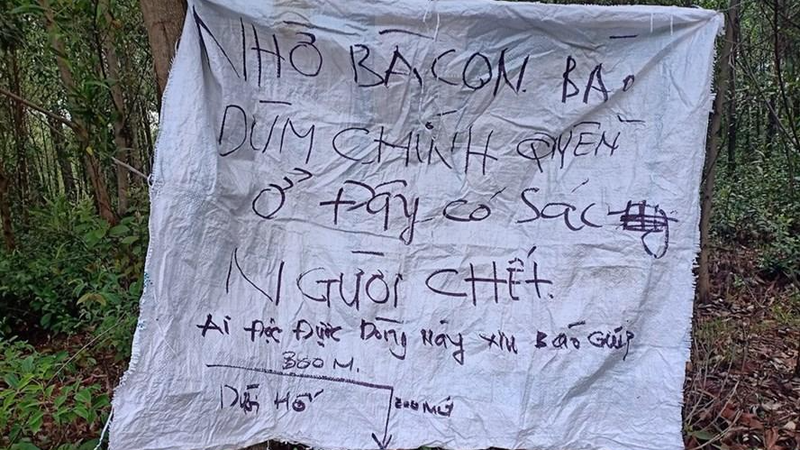 NHỜ BÀ CON BÁO
DÙM CHÍNH QUYỀN
Ở ĐÂY CÓ SÁC
NGƯỜI CHẾT.
Ai Đọc Được Dòng Này Xin Báo Giúp
300 M.
Dưới Hố 200 M